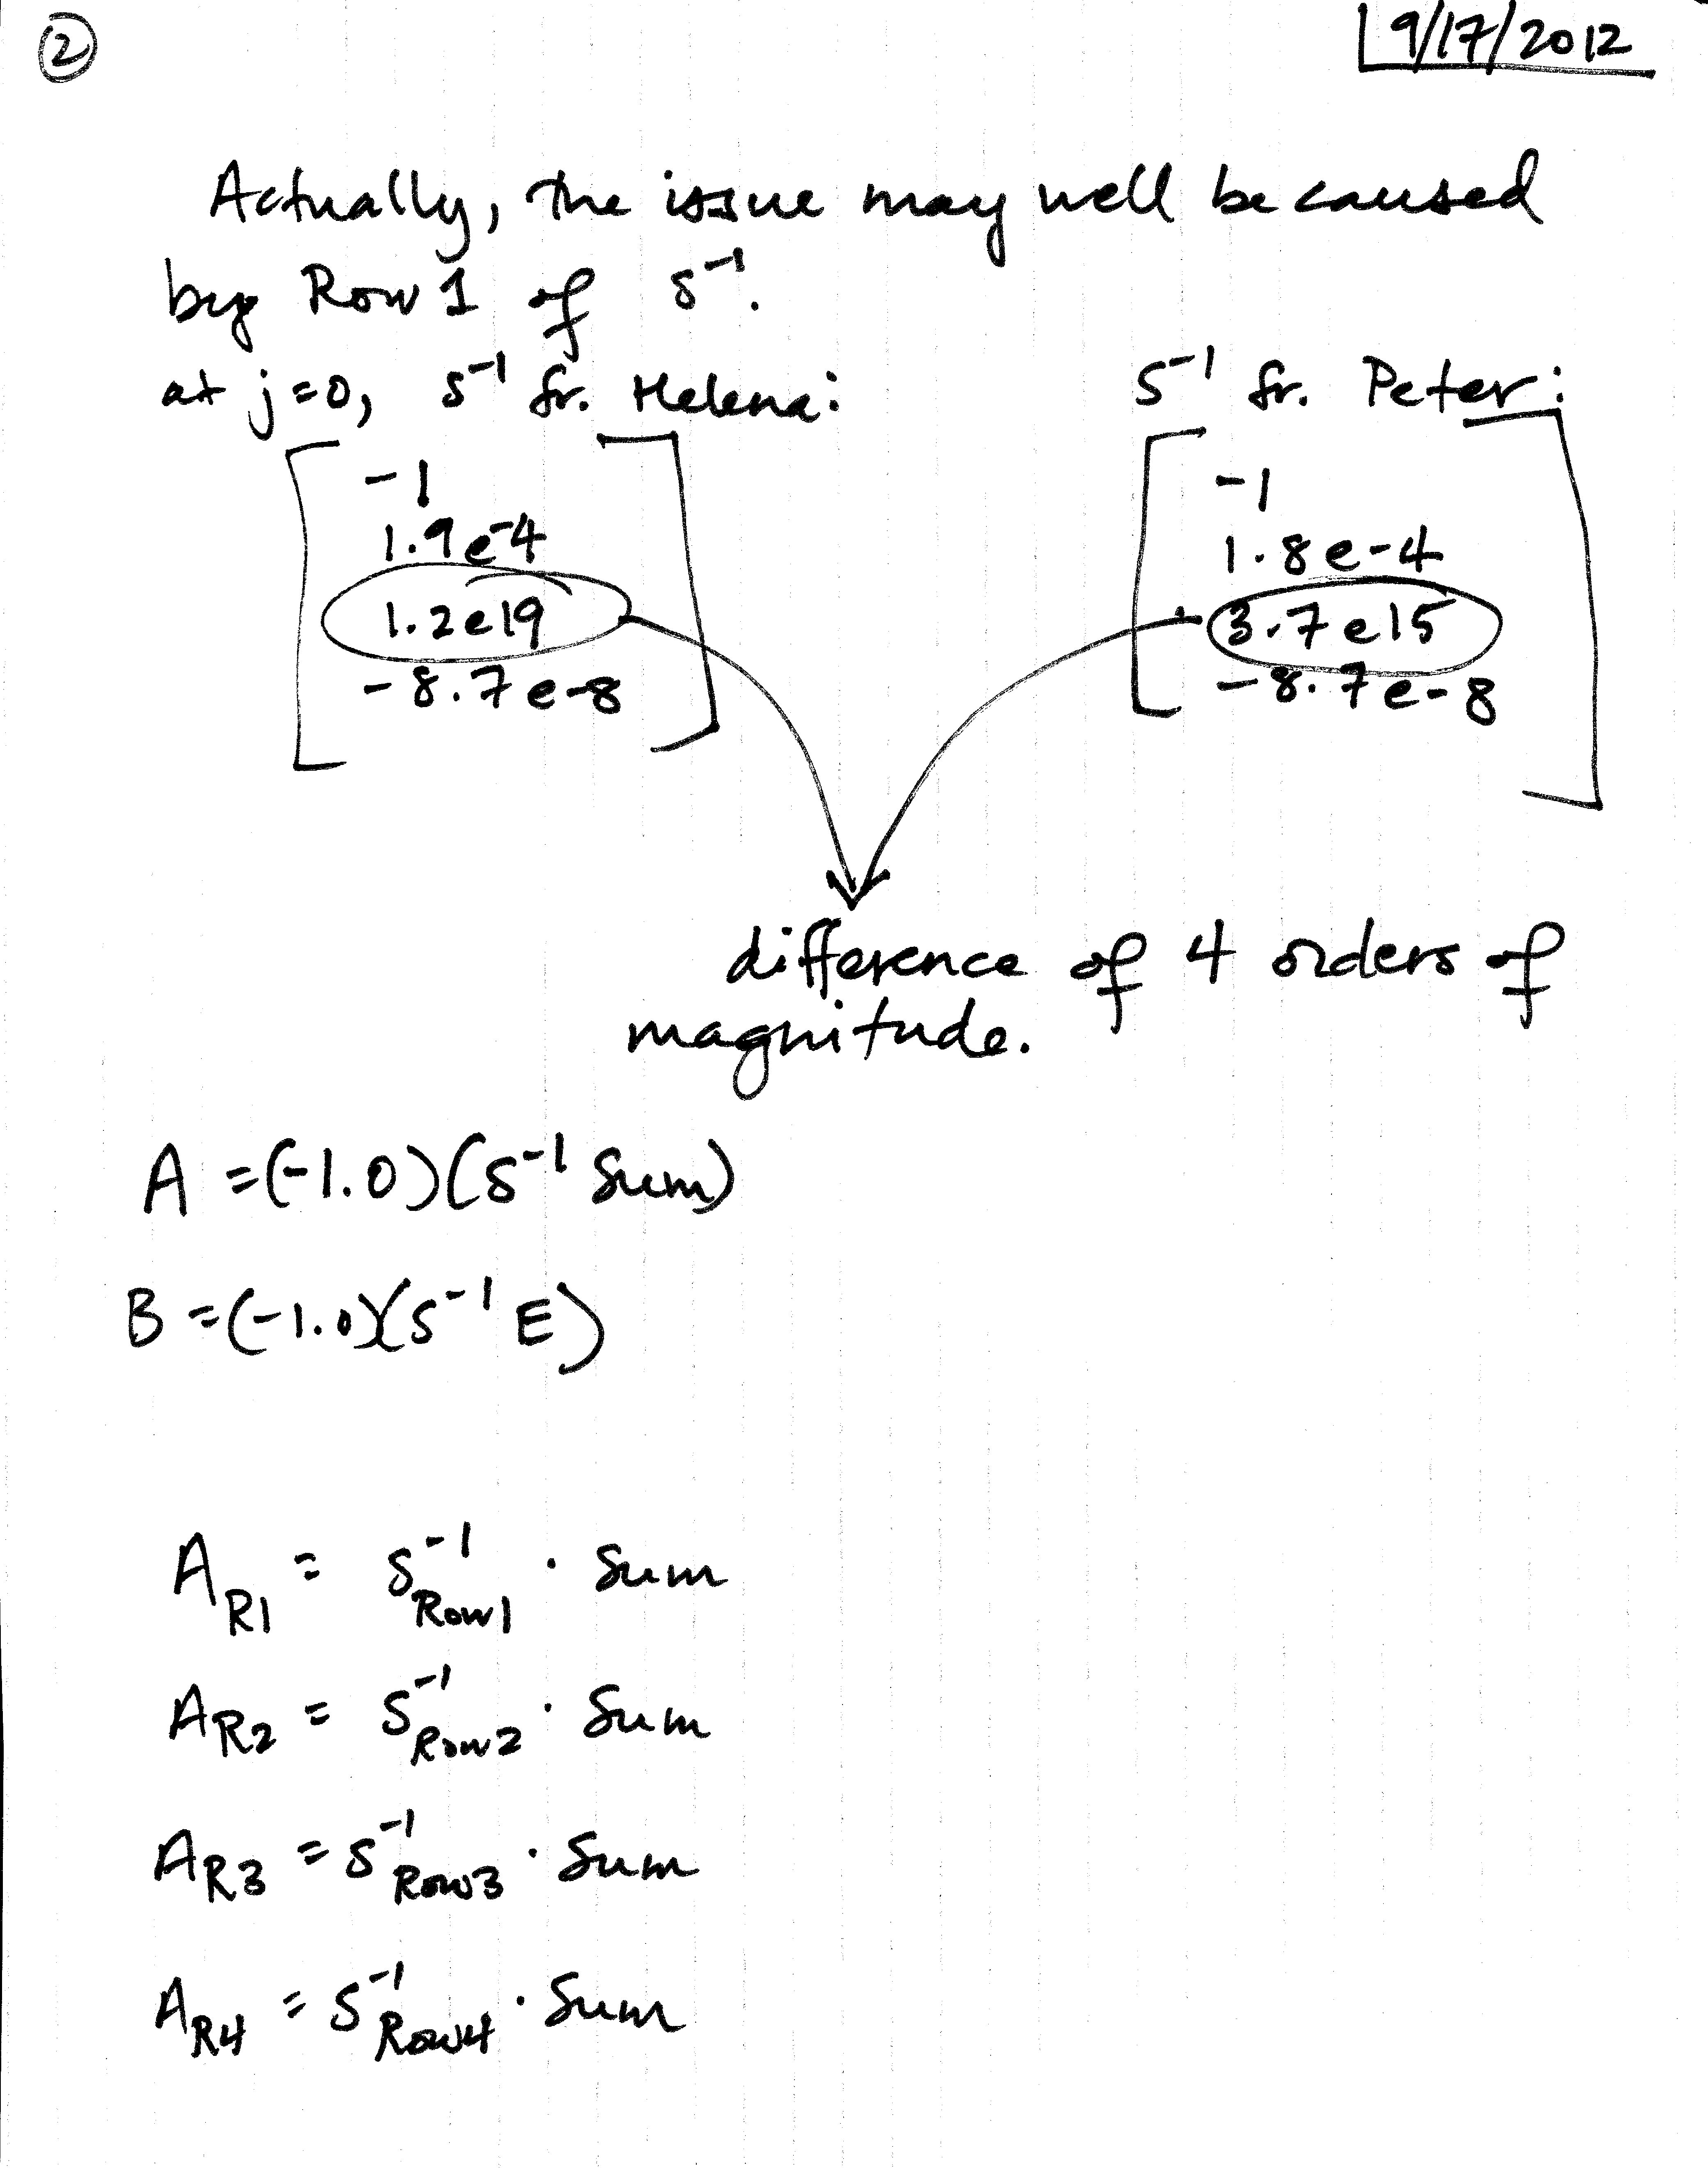 ② 9/17/2012
Actually, the issue may well be caused
by Row 1 of S⁻¹.
at j=0, S⁻¹ fr. Helena: S⁻¹ fr. Peter:
-1 -1
1.9e-4 1.8e-4
1.2e19 3.7e15
-8.7e-8 -8.7e-8
difference of 4 orders of
magnitude.
A =(-1.0)(S⁻¹ Sum)
B =(-1.0)(S⁻¹ E)
A_R1 = S⁻¹_Row1 · Sum
A_R2 = S⁻¹_Row2 · Sum
A_R3 = S⁻¹_Row3 · Sum
A_R4 = S⁻¹_Row4 · Sum